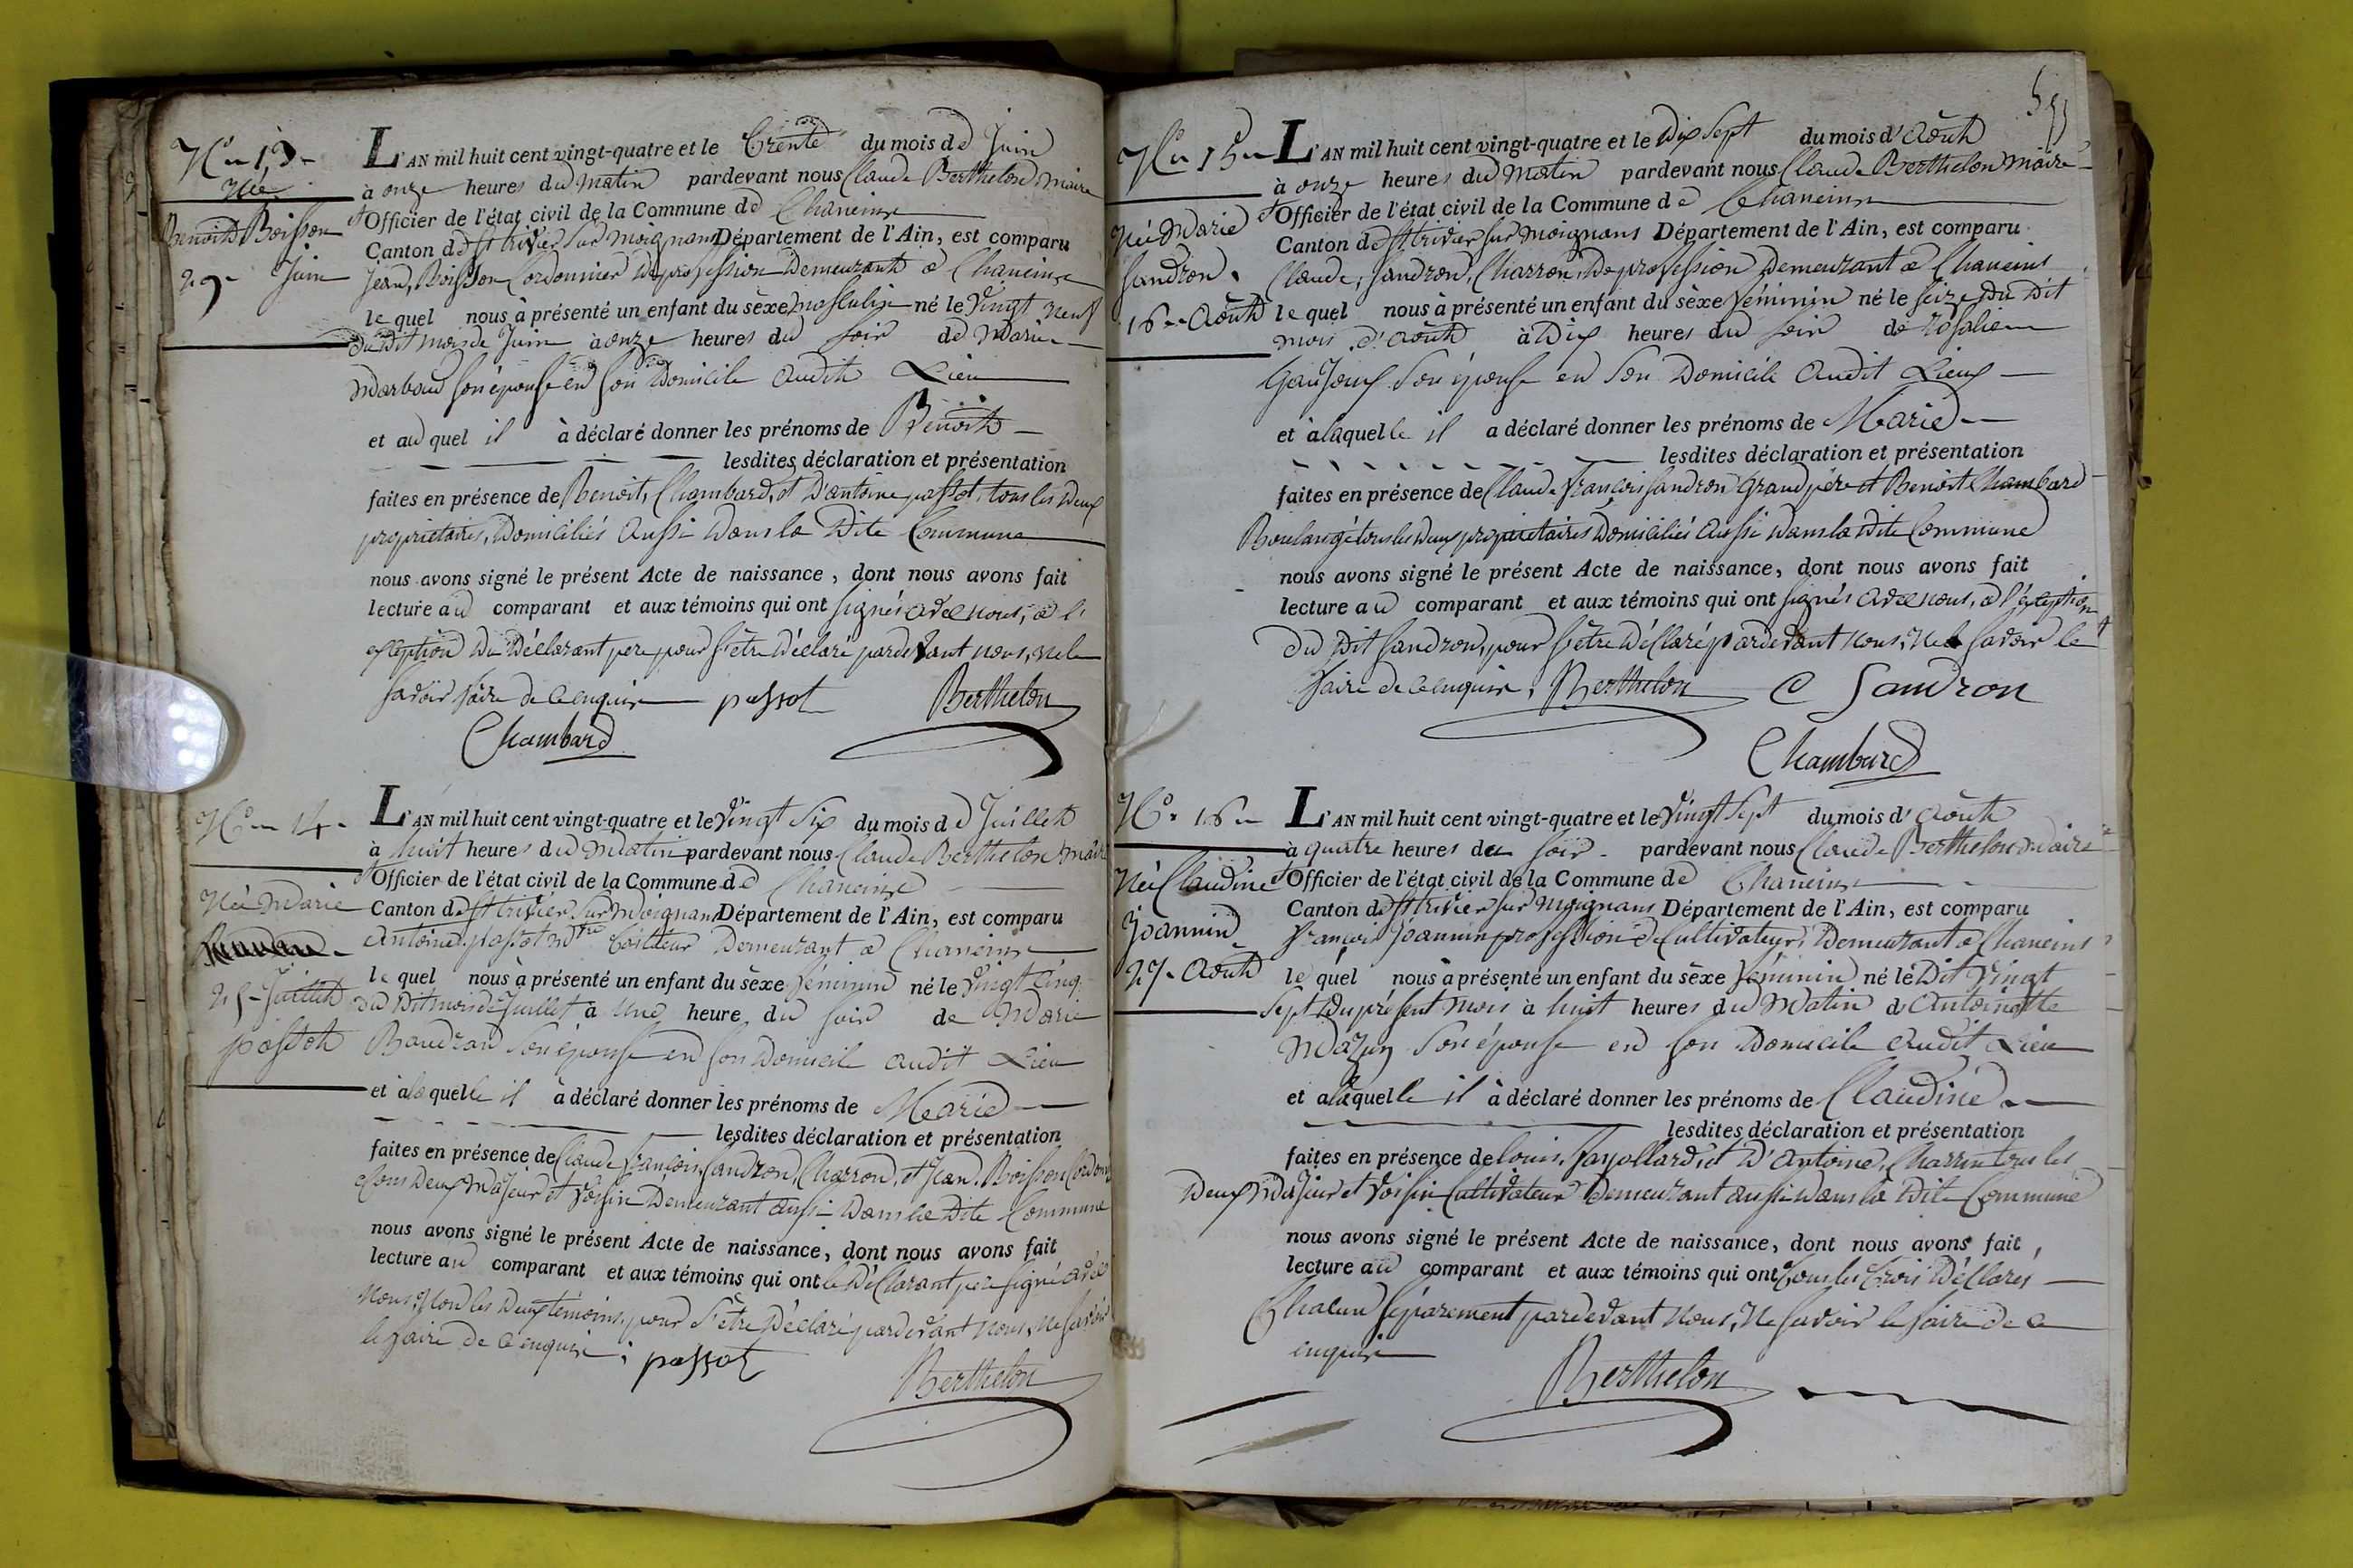 N.° 13
Né
Benoit Boisson
29 Juin
L'AN mil huit cent vingt-quatre et le Trente du mois de Juin
à onze heures du Matin pardevant nous Claude Berthelon Maire
et Officier de l'état civil de la Commune de Chaneins
Canton de St trivier Sur moignans Département de l'Ain, est comparu
Jean, Boisson Cordonnier de profession Demeurant à Chaneins
le quel nous à présenté un enfant du sèxe masculin né le vingt neuf
du dit mois de Juin à onze heures du soir de Marie
Marbaud son épouse en son Domicile audit Lieu
et au quel il à déclaré donner les prénoms de Benoit
lesdites déclaration et présentation
faites en présence de Benoit, Chambard, et D'antoine passot, tous les deux
proprietaires, Domiciliés aussi dans la Dite Commune
nous avons signé le présent Acte de naissance, dont nous avons fait
lecture au comparant et aux témoins qui ont signés avec nous, à l'
exseption du Déclarant pere pour s'être Déclaré pardevant nous, ne le
savoir faire de ce enquis passot Berthelon
Chambard
N.° 14
Née Marie
25 Juillet
passot
L'AN mil huit cent vingt-quatre et le Vingt Six du mois de Juillet
à huit heures du Matin pardevant nous Claude Berthelon Maire
et Officier de l'état civil de la Commune de Chaneins
Canton de St trivier Sur Moignans Département de l'Ain, est comparu
Antoine passot Tailleur Demeurant à Chaneins
le quel nous à présenté un enfant du sèxe féminin né le vingt Cinq
du Dit mois de Juillet à une heure du soir de Marie
Baudran son épouse en son Domicile audit Lieu
et à la quelle il à déclaré donner les prénoms de Marie
lesdites déclaration et présentation
faites en présence de Claude françois, Sandron, Charron, et Jean. Boisson
tous Deux Majeur et Voisin Demeurant aussi Dans la Dite Commune
nous avons signé le présent Acte de naissance, dont nous avons fait
lecture au comparant et aux témoins qui ont le Déclarant pere signé avec
nous, Non les Deux témoins, pour s'être Déclaré pardevant nous, ne savoir
le faire de ce enquis; passot
Berthelon
N.° 15
Née Marie
Sandron,
16 Août
L'AN mil huit cent vingt-quatre et le Dix Sept du mois d'Août
à onze heures du Matin pardevant nous Claude Berthelon Maire
et Officier de l'état civil de la Commune de Chaneins
Canton de St trivier sur moignans Département de l'Ain, est comparu
Claude, Sandron, Charron, De profession Demeurant à Chaneins
le quel nous à présenté un enfant du sèxe féminin né le seize Du Dit
mois d'août à Dix heures du soir de rosalie
son épouse en son Domicile audit Lieux
et à laquelle il a déclaré donner les prénoms de Marie
lesdites déclaration et présentation
faites en présence de Claude françois Sandron Grand père et Benoit Chambard
Boulangé tous les Deux proprietaires Domiciliés aussi Dans la Dite Commune
nous avons signé le présent Acte de naissance, dont nous avons fait
lecture au comparant et aux témoins qui ont signés avec nous, à l'exseption
du Dit Sandron, pour s'être Déclaré pardevant nous, Ne savoir le
faire de ce enquis, Berthelon C Sandron
Chambard
N.° 16
Née Claudine
Joannin
27 Août
L'AN mil huit cent vingt-quatre et le Vingt Sept du mois d'Août
à quatre heures du soir pardevant nous Claude Berthelon Maire
et Officier de l'état civil de la Commune de Chaneins
Canton de St trivier sur Moignans Département de l'Ain, est comparu
françois Joannin profession de Cultivateur, Demeurant à Chaneins
le quel nous à présenté un enfant du sèxe féminin né le Dit vingt
sept du présent mois à huit heures du Matin de Antoinette
Mazuy son épouse en son Domicile audit Lieu
et à laquelle il à déclaré donner les prénoms de Claudine
lesdites déclaration et présentation
faites en présence de louis, fayollard, et D'Antoine, Charrin tous les
Deux Majeur et Voisin Cultivateur Demeurant aussi dans la Dite Commune
nous avons signé le présent Acte de naissance, dont nous avons fait,
lecture au comparant et aux témoins qui ont tous les trois Déclarés
Chacun séparement pardevant nous, Ne savoir le faire de ce
enquis
Berthelon